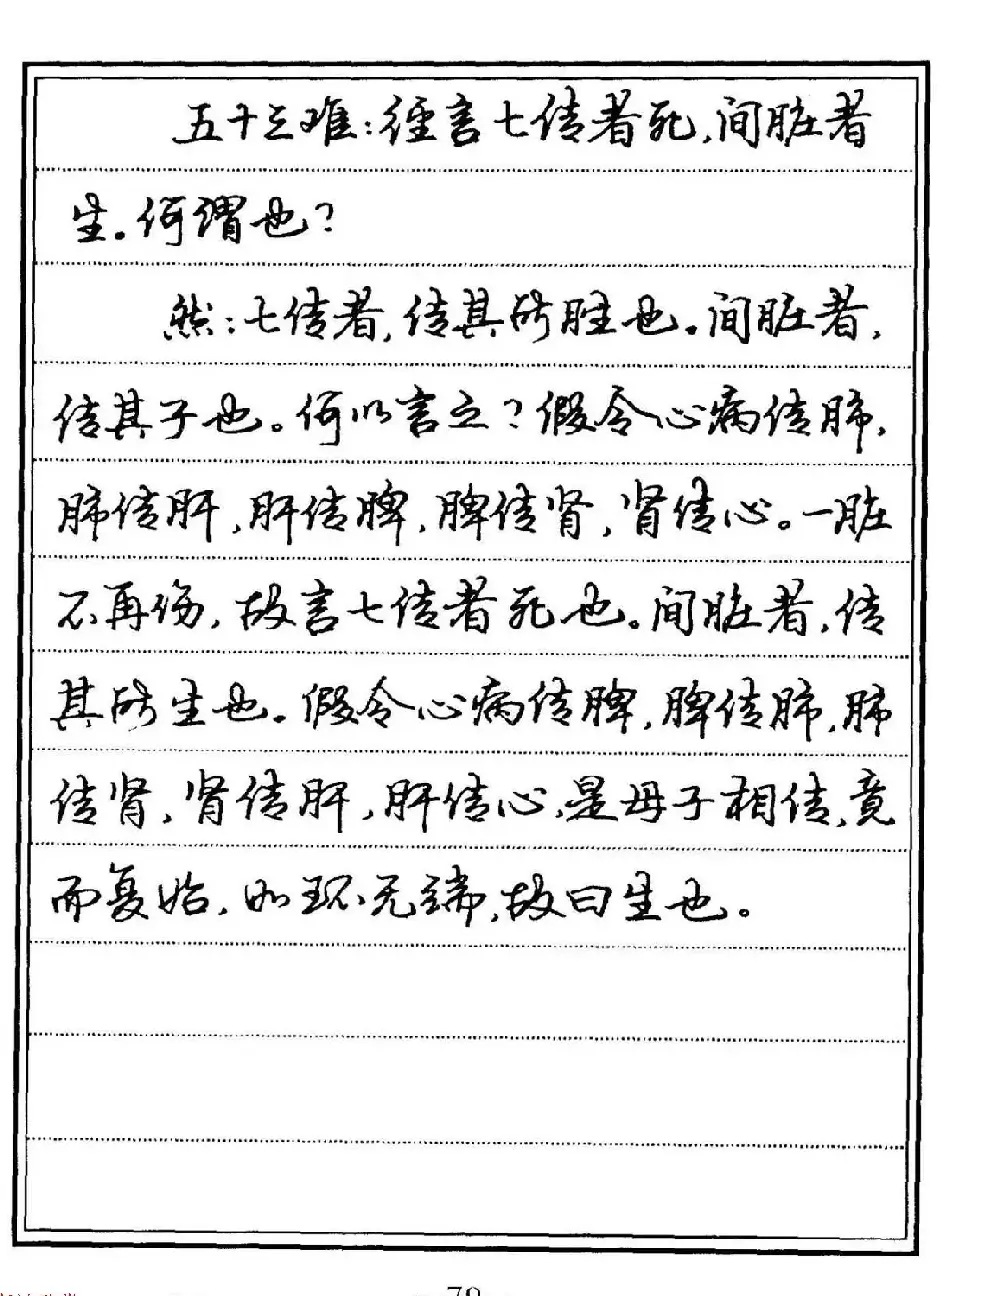 五十三难:经言七传者死,间脏者
生。何谓也?
然:七传者,传其所胜也。间脏者,
传其子也。何以言之?假令心病传肺,
肺传肝,肝传脾,脾传肾,肾传心。一脏
不再伤,故言七传者死也。间脏者,传
其所生也。假令心病传脾,脾传肺,肺
传肾,肾传肝,肝传心,是母子相传,竟
而复始,如环无端,故曰生也。